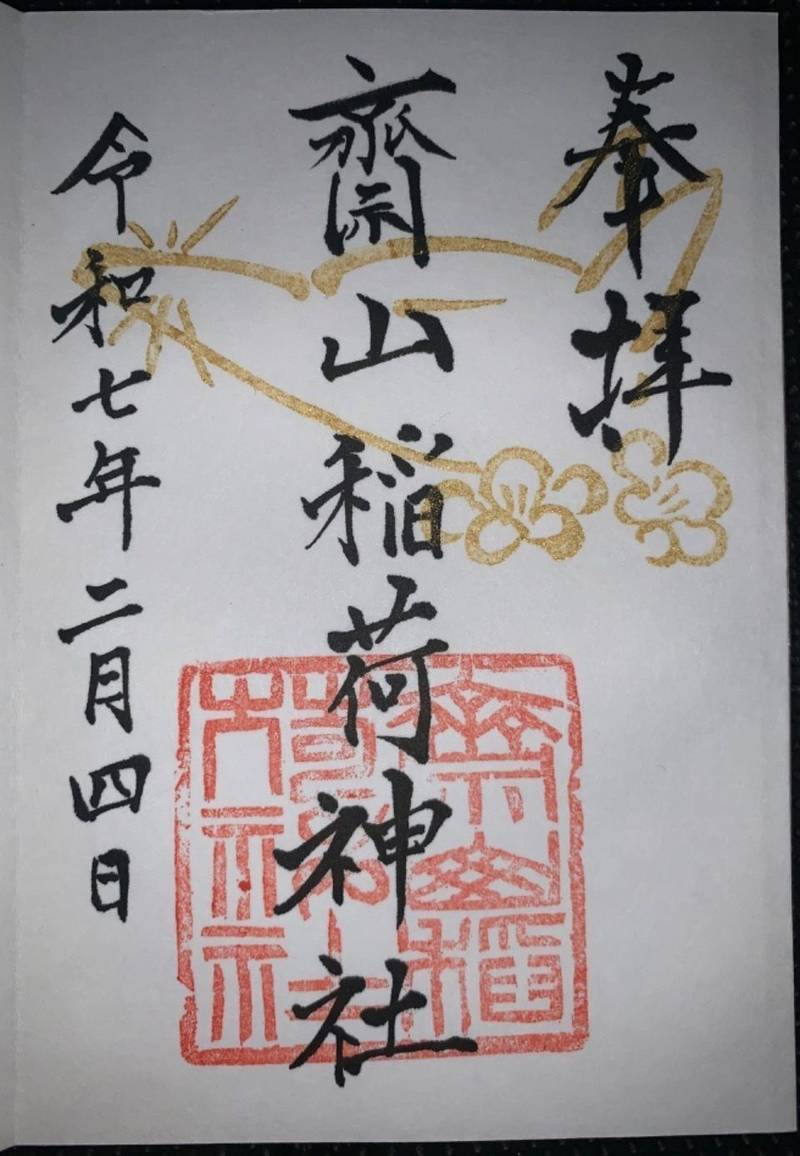 奉拝
齋山稲荷神社
令和七年二月四日